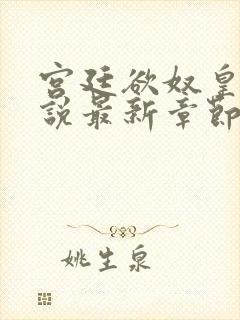 宫廷欲奴皇
說最新章節
姚生泉